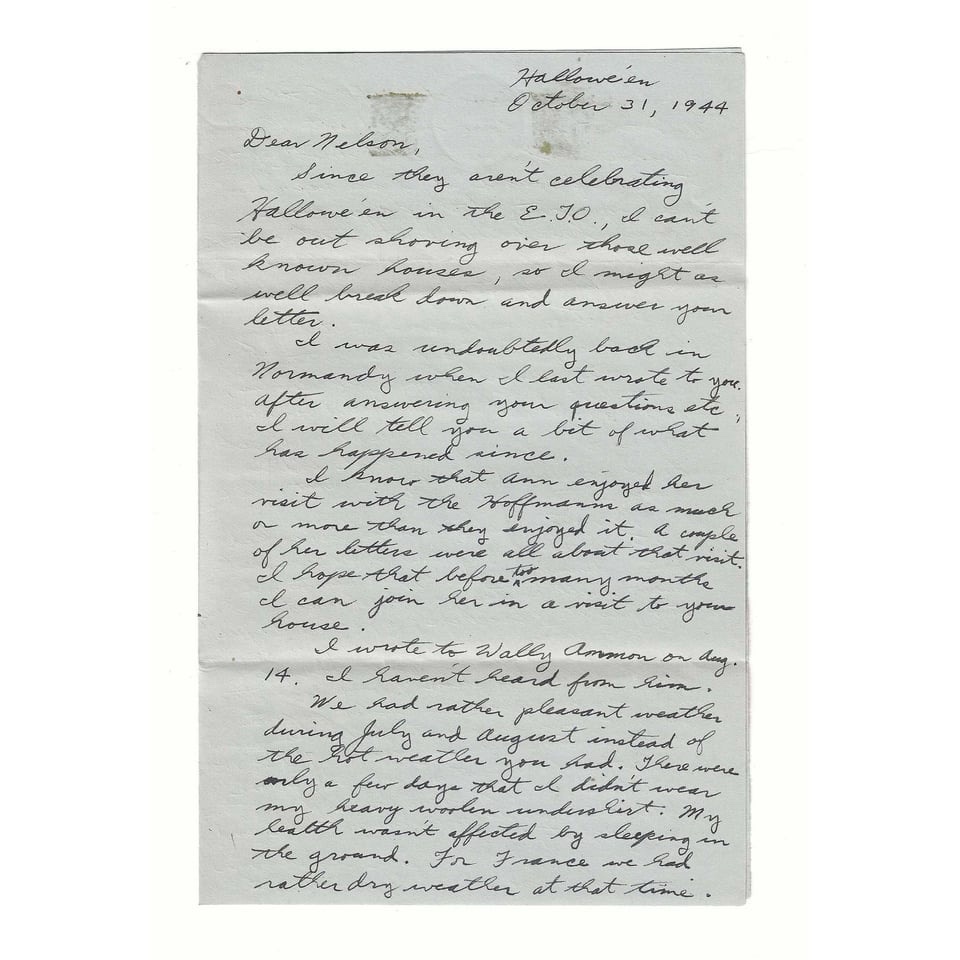 Hallowe'en
October 31, 1944
Dear Nelson,
Since they aren't celebrating
Hallowe'en in the E.T.O., I can't
be out shoving over those well
known houses, so I might as
well break down and answer your
letter.
I was undoubtedly back in
Normandy when I last wrote to you.
After answering your questions etc.,
I will tell you a bit of what
has happened since.
I know that Ann enjoyed her
visit with the Hoffmanns as much
or more than they enjoyed it. A couple
of her letters were all about that visit.
I hope that before too many months
I can join her in a visit to your
house.
I wrote to Wally Ammon on Aug.
14. I haven't heard from him.
We had rather pleasant weather
during July and August instead of
the hot weather you had. There were
only a few days that I didn't wear
my heavy woolen undershirt. My
health wasn't affected by sleeping in
the ground. For France we had
rather dry weather at that time.